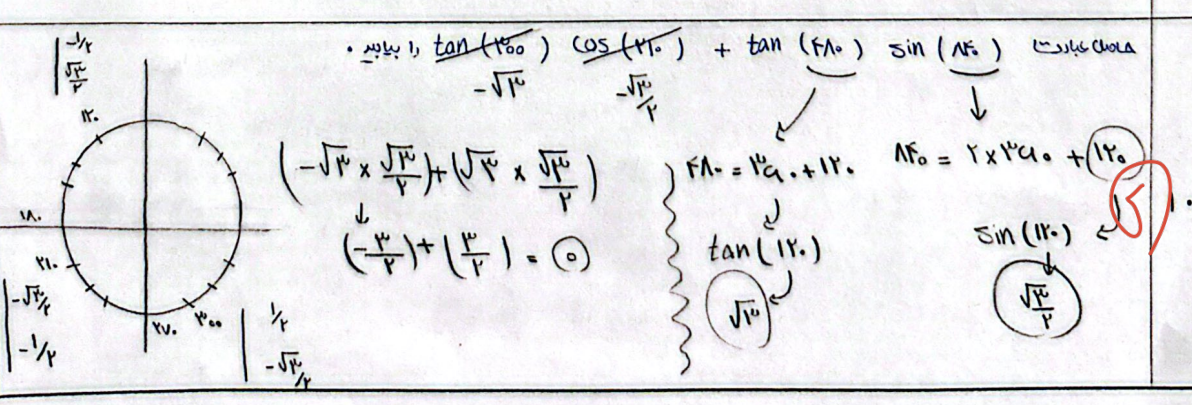 حاصل عبارت sin (۸۴۰) tan (۴۸۰) + cos (۲۱۰) tan (۳۰۰) را بیابید .
-√۳
-√۳/۲
۸۴۰ = ۲ × ۳۶۰ + ۱۲۰
sin (۱۲۰)
√۳/۲
۴۸۰ = ۳۶۰ + ۱۲۰
tan (۱۲۰)
√۳
(-√۳ × √۳/۲) + (√۳ × √۳/۲)
(-۳/۲) + (۳/۲) = ۰
-۱/۲
√۳/۲
۱۲۰
۱۸۰
۲۱۰
-√۳/۲
-۱/۲
۲۷۰
۳۰۰
۱/۲
-√۳/۲